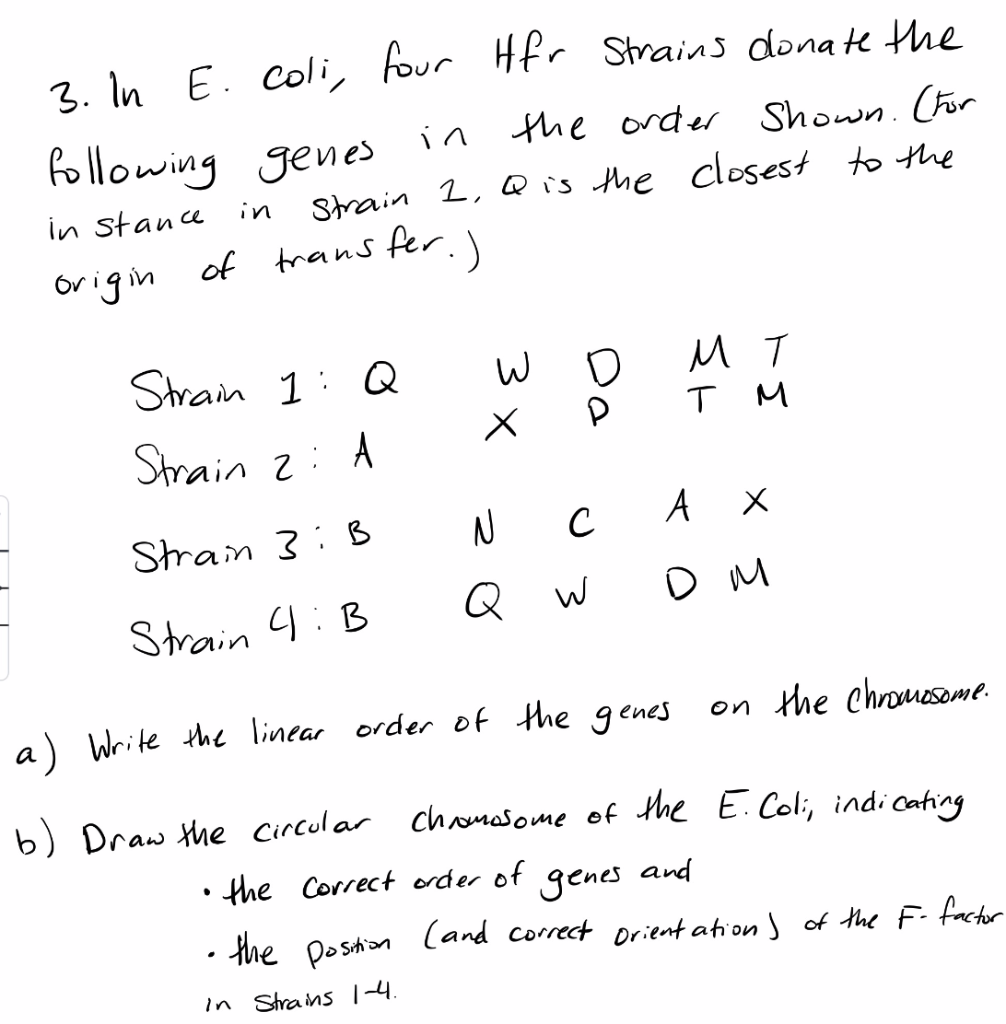 3. In E. coli, four Hfr Strains donate the
following genes in the order Shown. (For
instance in Strain 1, Q is the closest to the
origin of transfer.)
Strain 1: Q W D M T
Strain 2: A X P T M
Strain 3: B N C A X
Strain 4: B Q W D M
a) Write the linear order of the genes on the Chromosome.
b) Draw the circular chromosome of the E. Coli, indicating
• the correct order of genes and
• the position (and correct orientation) of the F-factor
in Strains 1-4.